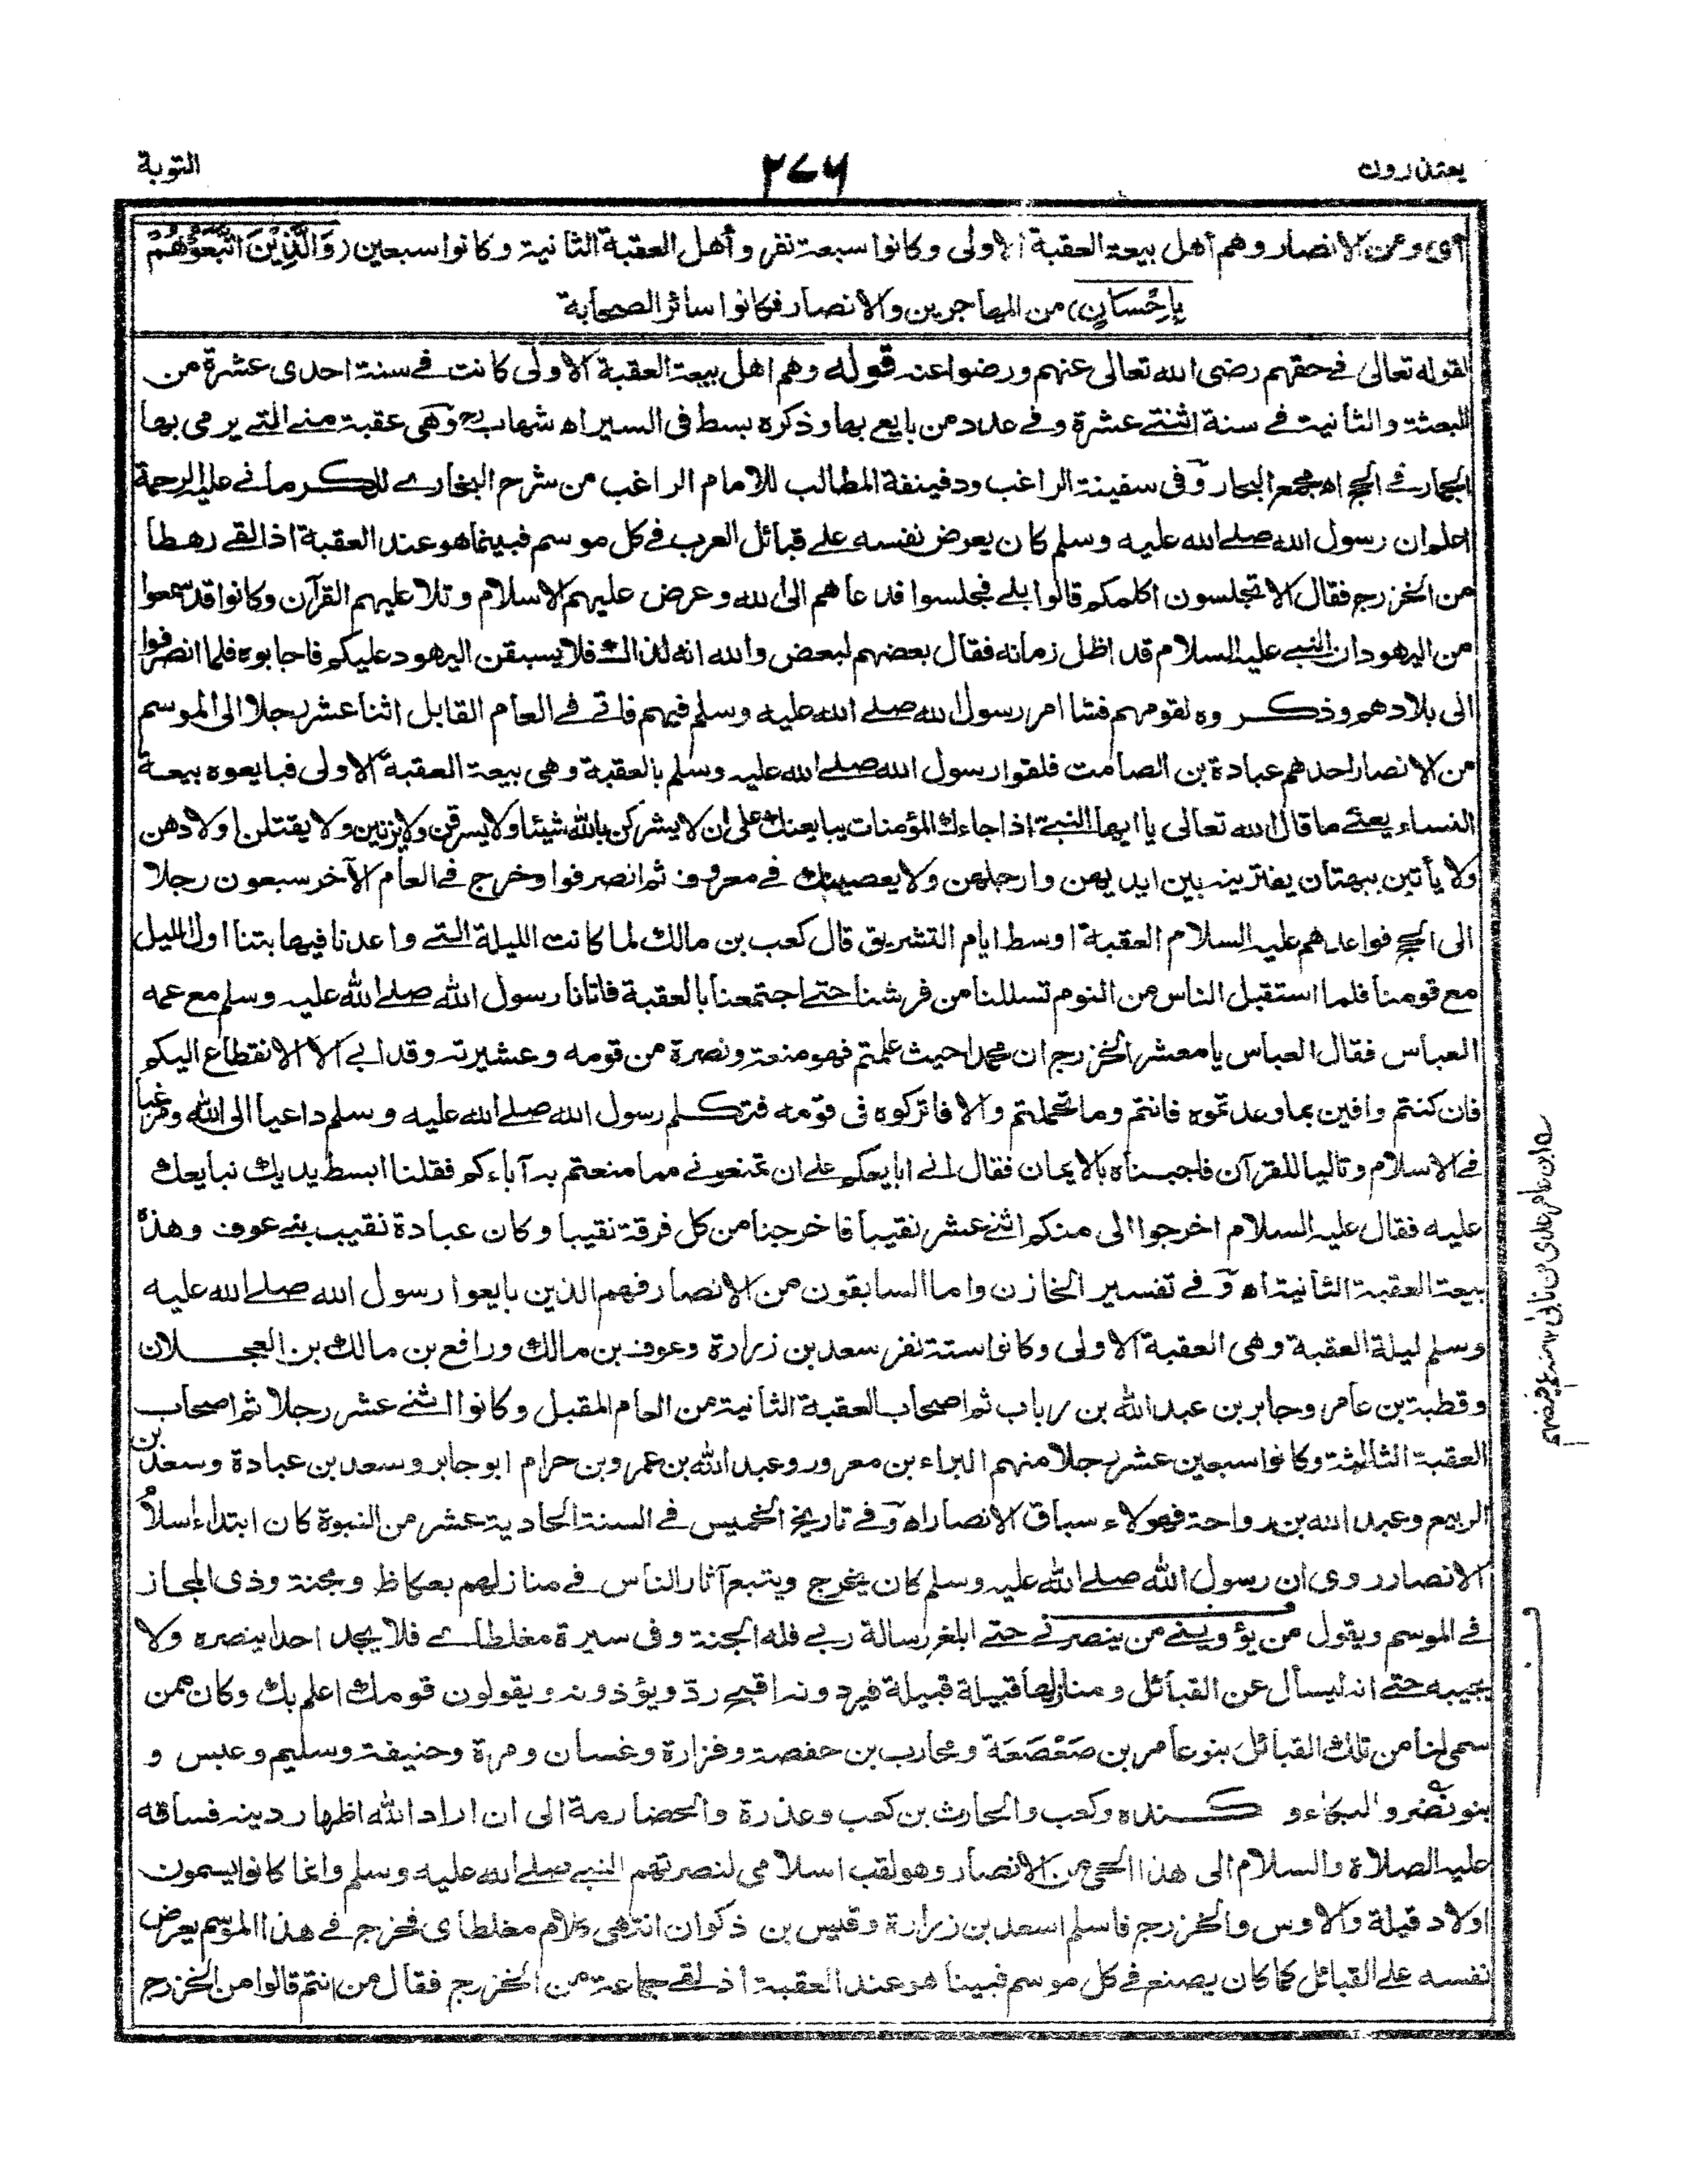 يعتذرون
٢٧٦
التوبة
أى ومن الانصار وهم أهل بيعة العقبة الاولى وكانوا سبعة نفر وأهل العقبة الثانية وكانوا سبعين (وَالَّذِيْنَ اتَّبَعُوْهُمْ
بِاِحْسَانٍ) من المهاجرين والانصار فكانوا سائر الصحابة
لقوله تعالى فے حقهم رضى الله تعالى عنهم ورضوا عنه قوله وهم اهل بيعة العقبة الاولى كانت فے سنة احدى عشرة من
البعثة والثانية فے سنة اثنتے عشرة وفے عدد من بايع بها وذكره بسط فى السير اه شهاب وهى عقبة منے التے يرمى بها
الجمار فے الحج اه مجمع البحار وفى سفينة الراغب ودفينة المطالب للامام الراغب من شرح البخارے للكرمانے عليه الرحمة
اعلم ان رسول الله صلے الله عليه وسلم كان يعرض نفسه علے قبائل العرب فے كل موسم فبينما هو عند العقبة اذا لقے رهطا
من الخزرج فقال الا تجلسون اكلمكم قالوا بلے فجلسوا فدعاهم الى الله وعرض عليهم الاسلام وتلا عليهم القرآن وكانوا قد سمعوا
من اليهود ان النبے عليه السلام قد اظل زمانه فقال بعضهم لبعض والله انه لذالك فلا يسبقن اليهود عليكم فاجابوه فلما انصرفوا
الى بلادهم وذكروه لقومهم فشا امر رسول الله صلے الله عليه وسلم فيهم فاتے فے العام القابل اثنا عشر رجلا الى الموسم
من الانصار احدهم عبادة بن الصامت فلقوا رسول الله صلے الله عليه وسلم بالعقبة وهى بيعة العقبة الاولى فبايعوه بيعة
النساء يعنے ما قال الله تعالى يا ايها النبے اذا جاءك المؤمنات يبايعنك على ان لا يشركن بالله شيئا ولا يسرقن ولا يزنين ولا يقتلن اولادهن
ولا يأتين ببهتان يفترينه بين ايديهن وارجلهن ولا يعصينك فے معروف ثم انصرفوا وخرج فے العام الآخر سبعون رجلا
الى الحج فواعدهم عليه السلام العقبة اوسط ايام التشريق قال كعب بن مالك لما كانت الليلة التے واعدنا فيها بتنا اول الليل
مع قومنا فلما استقبل الناس من النوم تسللنا من فرشنا حتے اجتمعنا بالعقبة فاتانا رسول الله صلے الله عليه وسلم مع عمه
العباس فقال العباس يا معشر الخزرج ان محمدا حيث علمتم فهو منعة ونصرة من قومه وعشيرته وقد ابے الا الانقطاع اليكم
فان كنتم وافين بما وعدتموه فانتم وما تحملتم والا فاتركوه فى قومه فتكلم رسول الله صلے الله عليه وسلم داعيا الى الله ومرغبا
فے الاسلام وتاليا للقرآن فاجبناه بالايمان فقال انے ابايعكم علے ان تمنعونے مما منعتم به آباءكم فقلنا ابسط يديك نبايعك
عليه فقال عليه السلام اخرجوا الى منكم اثنے عشر نقيبا فاخرجنا من كل فرقة نقيبا وكان عبادة نقيب بنے عوف وهذه
بيعة العقبة الثانية اه وفے تفسير الخازن واما السابقون من الانصار فهم الذين بايعوا رسول الله صلے الله عليه
وسلم ليلة العقبة وهى العقبة الاولى وكانوا ستة نفر سعد بن زرارة وعوف بن مالك ورافع بن مالك بن العجلان
وقطبة بن عامر وجابر بن عبد الله بن رباب ثم اصحاب العقبة الثانية من العام المقبل وكانوا اثنے عشر رجلا ثم اصحاب
العقبة الثالثة وكانوا سبعين عشر رجلا منهم البراء بن معرور وعبد الله بن عمرو بن حرام ابو جابر وسعد بن عبادة وسعد بن
الربيع وعبد الله بن رواحة فهولاء سباق الانصار اه وفے تاريخ الخميس فے السنة الحادية عشر من النبوة كان ابتداء اسلام
الانصار روى ان رسول الله صلے الله عليه وسلم كان يخرج ويتبع آثار الناس فے منازلهم بعكاظ ومجنة وذى المجاز
فے الموسم ويقول من يؤوينے من ينصرنے حتے ابلغ رسالة ربے فله الجنة وفى سيرة مغلطاے فلا يجد احدا ينصره ولا
يجيبه حتے انه ليسأل عن القبائل ومنازلها قبيلة قبيلة فيردونه اقبح ردّ ويؤذونه ويقولون قومك اعلم بك وكان ممن
سمى لنا من تلك القبائل بنو عامر بن صَعْصَعَة ومحارب بن حفصة وفزارة وغسان ومرة وحنيفة وسليم وعبس و
بنو نضر والبكاء و كنده وكعب والحارث بن كعب وعذرة والحضارمة الى ان اراد الله اظهار دينه فساقه
عليه الصلاة والسلام الى هذا الحى من الانصار وهو لقب اسلامى لنصرتهم النبے صلے الله عليه وسلم وانما كانوا يسمون
اولاد قيلة والاوس والخزرج فاسلم اسعد بن زرارة وقيس بن ذكوان انتهى كلام مغلطاى فخرج فے هذا الموسم يعرض
نفسه علے القبائل كما كان يصنع فے كل موسم فبينا هو عند العقبة اذ لقے جماعة من الخزرج فقال من انتم قالوا من الخزرج